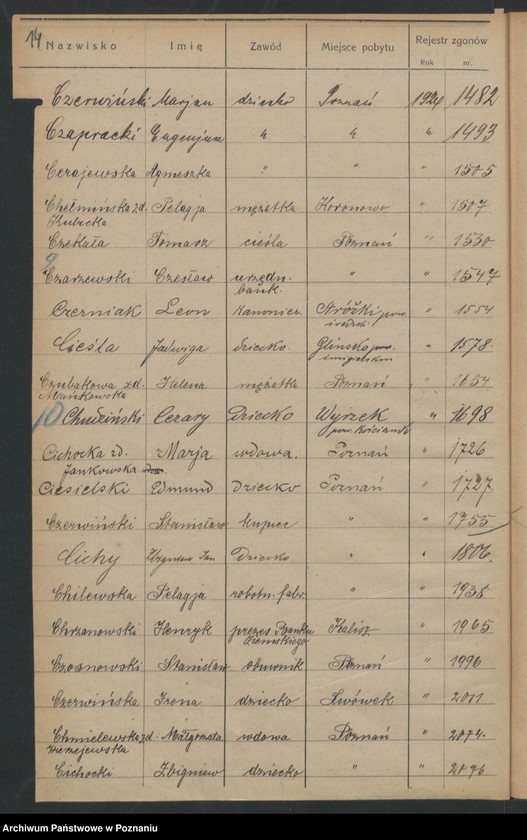 14
Nazwisko Imię Zawód Miejsce pobytu Rejestr zgonów
Rok nr.
Czerwiński Marjan dziecko Poznań 1924 1482
Czapracki Eugenjusz " " " 1493
Cerajewska Agnieszka " " " 1505
Chełmińska zd. Pelagja mężatka Koronowo " 1507
Kubicka
Czekała Tomasz cieśla Poznań " 1530
9
Czarzewski Czesław urzędn. " " 1547
bank.
Czerniak Leon kanonier. powt " 1554
średzki.
Cieśla Jadwiga dziecko. Glinsko pow. " 1578.
śmigielskim
Czubakowa zd. Halena mężatka Poznań " 1654
Mańkowska
10 Chudziński Cezary Dziecko Wyrzek " 1698
pow. Kościański
Cichocka zd. Marja wdowa. Poznań " 1726
Jankowska
Ciesielski Edmund Dziecko Poznań " 1727
Czerwiński Stanisław kupiec " " 1755
Cichy Zbigniew Jan Dziecko " " 1806.
Chilewska Pelagja robotn. fabr. " " 1938
Chrzanowski Henryk prezes Banku Kalisz " 1965
Ziemskiego
Czosnowski Stanisław Poznań " 1996
Czerwińska Irena dziecko Lwówek " 2011
Chmielewska zd. Małgorzata wdowa Poznań " 2074.
Cichocki Zbigniew dziecko " " 2076
Archiwum Państwowe w Poznaniu